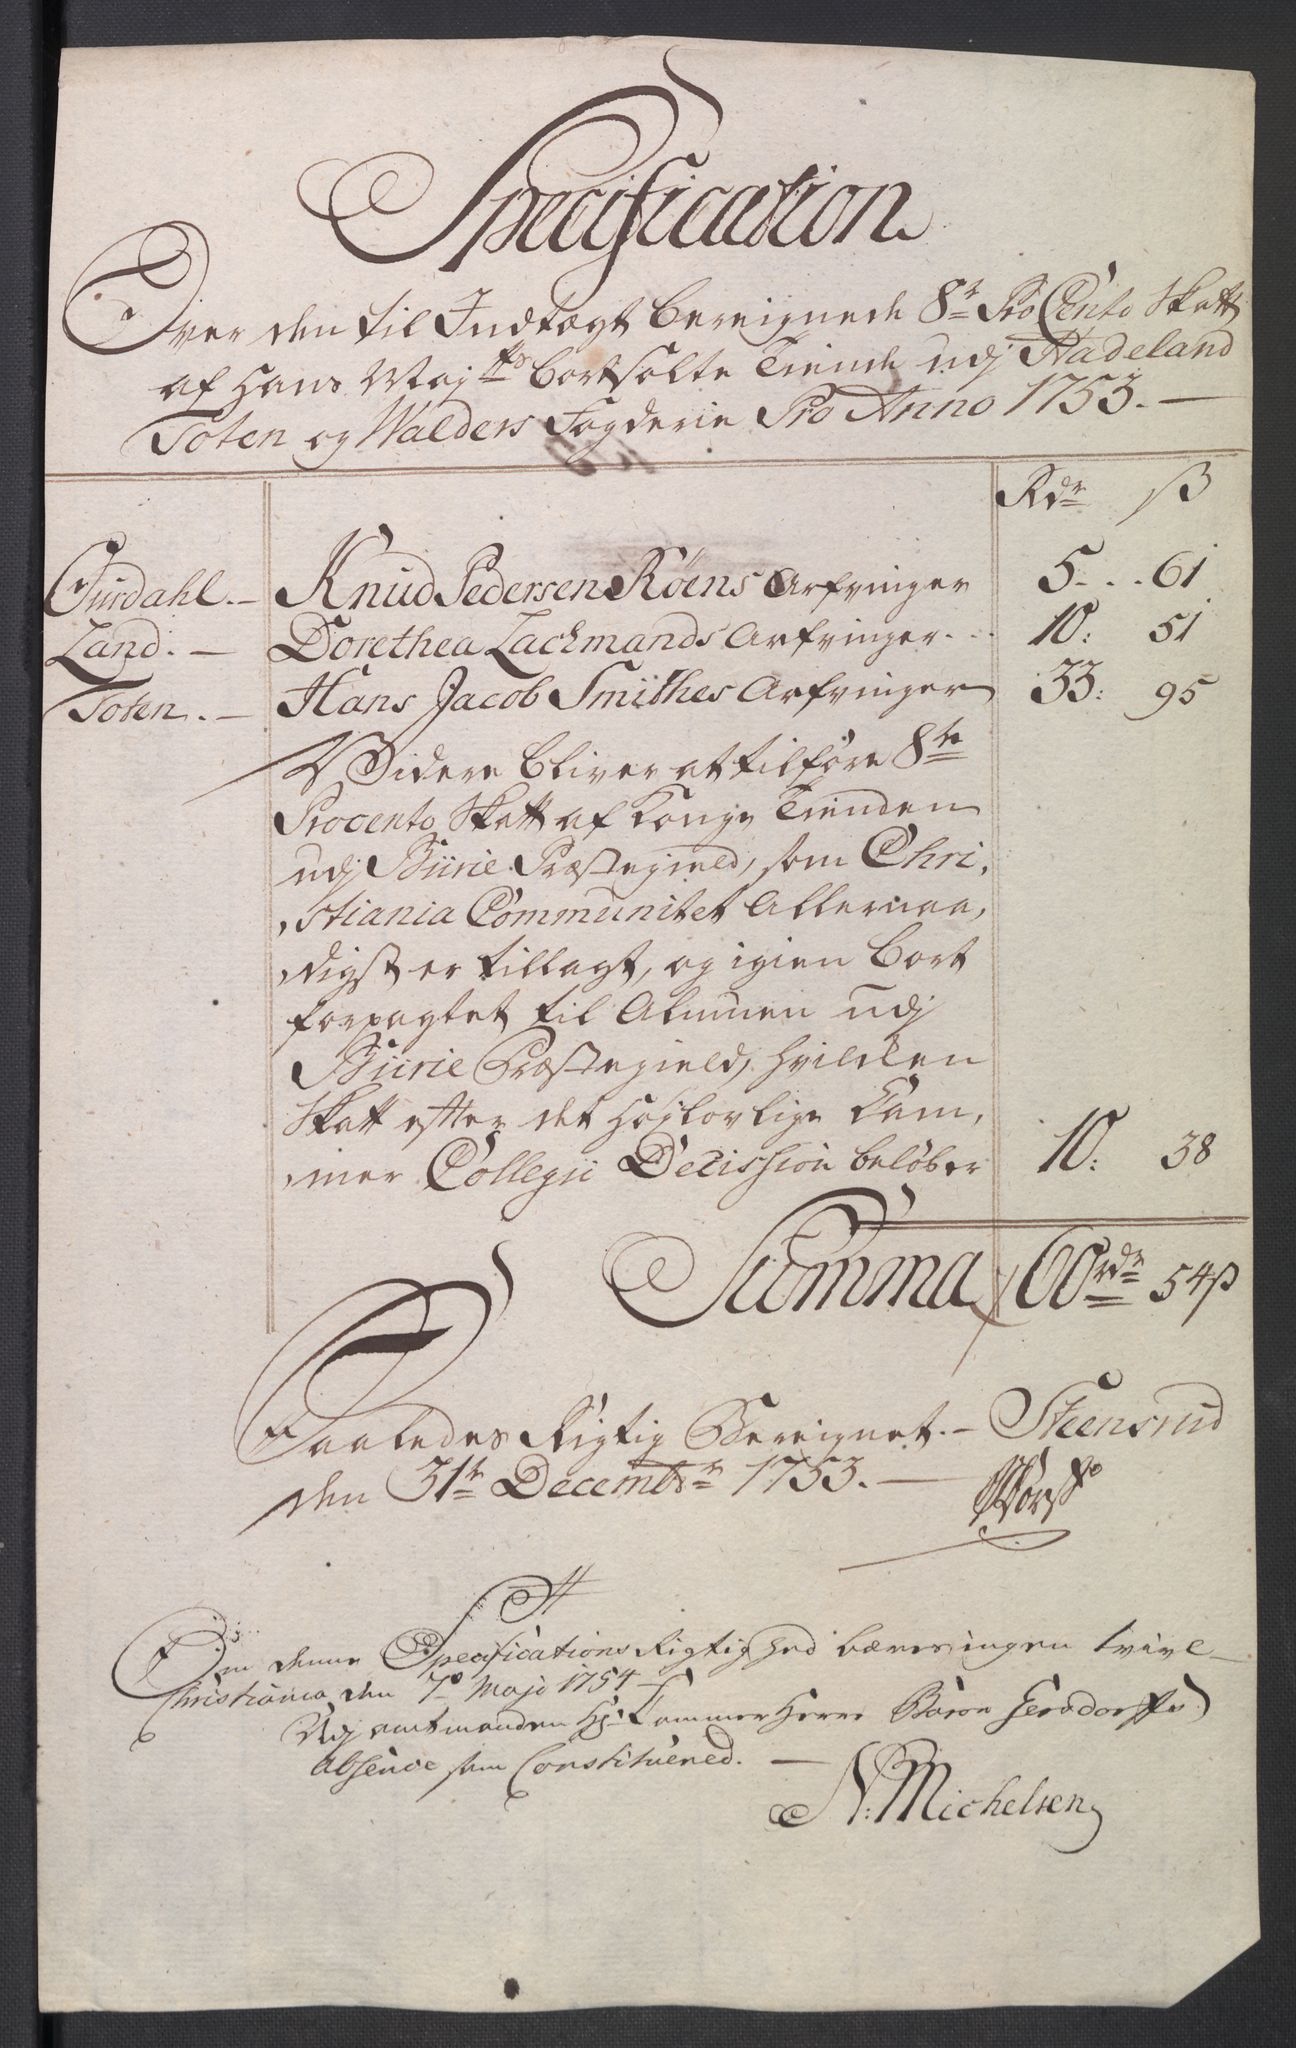 Specification
Over den til Indtægt bereignede 8te Pro Cento Skatt
af Hans Mayts bortsolte Tiende udj Hadeland
Toten og Walders Fogderie Pro Anno 1753. —
Rdr ß
Ourdahl. — Knud Pedersen Röens Arfvinger 5 - . . 61
Land. — Dorethea Lachmands Arfvinger . . . 10: 51
Toten. — Hans Jacob Smithes Arfvinger 33: 95
Videre bliver at tilföre 8te
Procento Skatt af Konge Tienden
udj Biirie Præstegield, som Chri,
,stiania Communitet Allernaa,
,digst er tillagt, og igien bort
forpagtet til Almuen udj
Biirie Præstegield, hvilcken
Skatt efter det Höylovlige Cam,
,mer Collegii Decission belöber 10: 38
Summa 60rdr 54ß
Saaledes Rigtig Bereignet. — Steensrud
den 31te Decembr 1753. —
Om denne Specifications Rigtighed bæres ingen tvivl —
Christiania den 7de Maji 1754 —
Udj amtmanden Hr: Kammer Herre Baron Gersdorffs
absence som Constitueret. —
N: Michelsen